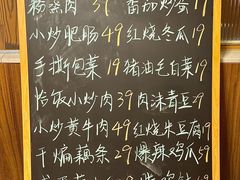 杨蒸肉 39 番茄炒蛋 19
小炒肥肠 49 红烧冬瓜 19
手撕包菜 19 猪油毛白菜 19
拾饭小炒肉 39 肉沫青豆 29
小炒黄牛肉 49 红烧牛豆腐 19
干煸藕条 29 爆辣鸡瓜 59